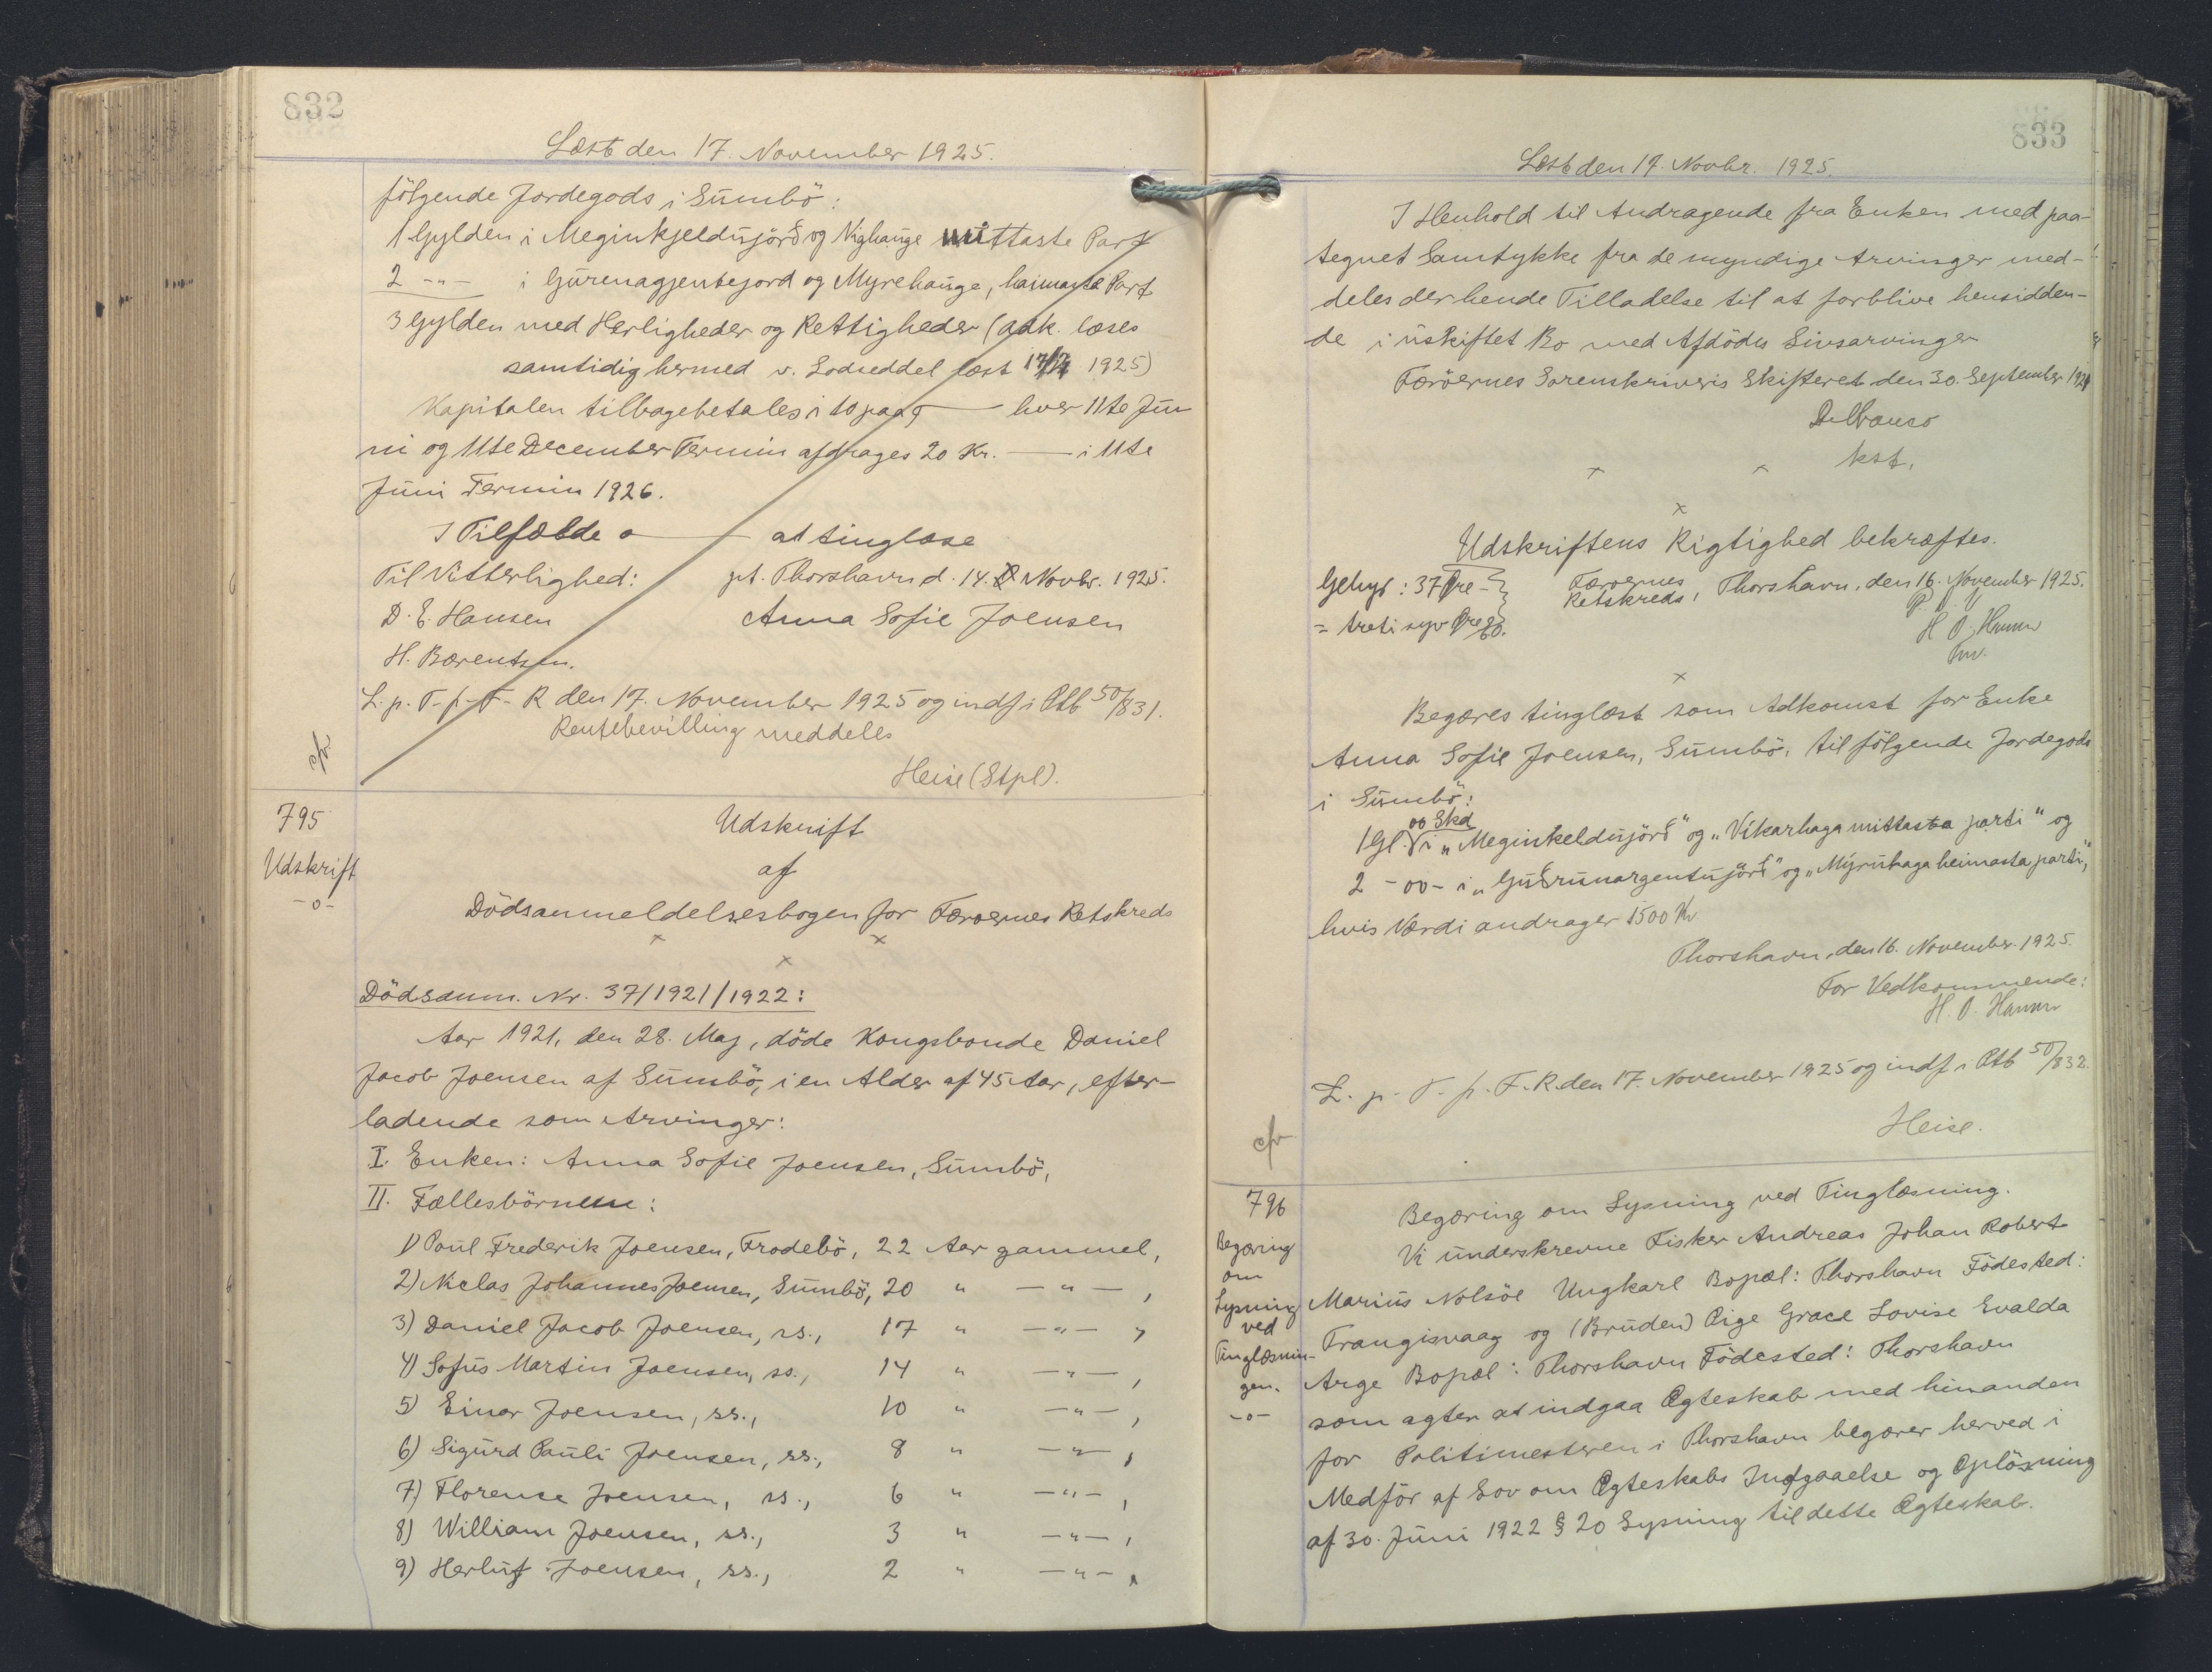 832
Læst den 17. November 1925.
fölgende Jordegods i Sumbö:
1 Gylden i Meginkjeldujörð og Vighauge mittaste Part
2 -"- i Gurenagjentejord og Myrehauge, haimaste Part
3 Gylden med Herligheder og Rettigheder (adk. læses
samtidig hermed v. Lodseddel læst 17/7 1925)
Kapitalen tilbagebetales i 10 paa g — hver 11te Ju-
ni og 11te December Termin afdrages 20 Kr. — i 11te
Juni Termin 1926.
I Tilfælde o — at tinglæse
Til Vitterlighed: pt. Thorshavn d. 14. Novbr. 1925.
D. E. Hansen Anna Sofie Joensen
H. Bærentsen.
L. p. T. f. F. R den 17. November 1925 og indf i Ptb 50/831.
Rentebevilling meddeles
cfr
Heise (Stpl).
795
Udskrift
-o-
Udskrift
af
Dödsanmeldelsesbogen for Færøernes Retskreds
x x
x
Dödsanm. Nr. 37/1921/1922:
Aar 1921, den 28. Maj, döde Kongsbonde Daniel
Jacob Joensen af Sumbö, i en Alder af 45 Aar, efter-
ladende som Arvinger:
I. Enken: Anna Sofie Joensen, Sumbö,
II. Fællesbörnene:
1) Poul Frederik Joensen, Frodebö, 22 Aar gammel,
2) Niclas Johannes Joensen, Sumbö, 20 " —"—,
3) Daniel Jacob Joensen, ss., 17 " —"—,
4) Sofus Martin Joensen, ss., 14 " —"—,
5) Einar Joensen, ss., 10 " —"—,
6) Sigurd Pauli Joensen, ss., 8 " —"—,
7) Florense Joensen, ss., 6 " —"—,
8) William Joensen, ss., 3 " —"—,
9) Herluf Joensen, ss., 2 " —"—,
833
Læst den 17. Novbr. 1925.
I Henhold til Andragende fra Enken med paa-
tegnet Samtykke fra de myndige Arvinger med-
deles der hende Tilladelse til at forblive hensidden-
de i uskiftet Bo med Afdödes Livsarvinger
Færöernes Sorenskriveris Skifteret den 30. September 1921
kst.
x x
x
Udskriftens Rigtighed bekræftes.
Gebyr: 37 Øre - Færøernes
= treti syv Øre Retskreds, Thorshavn, den 16. November 1925.
H. D. Hansen
x
Begæres tinglæst som Adkomst for Enke
Anna Sofie Joensen, Sumbö, til fölgende Jordegods
i Sumbö:
oo Skd
1 Gl. V i „Meginkeldujörð" og „Víkarhaga mittasta parti" og
2 -oo- i „Guðrunargentujørð" og „Mýruhaga heimasta parti",
hvis Værdi andrager 1500 Kr
Thorshavn, den 16. November 1925.
For Vedkommende:
H. D. Hansen
L. p. T. f. F. R. den 17. November 1925 og indf i Ptb 50/832.
cfr
Heise.
796
Begæring
om
Lysning
ved
Tinglæsnin-
gen.
-o-
Begæring om Lysning ved Tinglæsning.
Vi underskrevne Fisker Andreas Johan Robert
Marius Nolsöe Ungkarl Bopæl: Thorshavn Födested:
Trangisvaag og (Bruden) Pige Grace Lovise Evalda
Arge Bopæl: Thorshavn Födested: Thorshavn
som agter at indgaa Ægteskab med hinanden
for Politimesteren i Thorshavn begærer herved i
Medför af Lov om Ægteskabs Indgaaelse og Oplösning
af 30. Juni 1922 § 20 Lysning til dette Ægteskab.